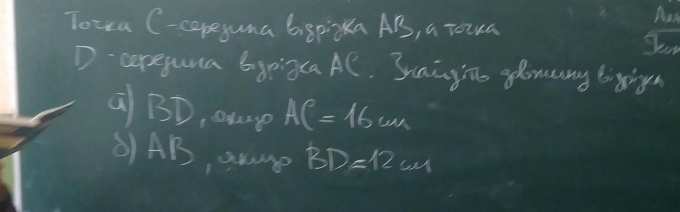 Точка C - середина відрізка AB, а точка
D - середина відрізка AC. Знайдіть довжину відрізка
а) BD, якщо AC = 16 см
б) AB, якщо BD = 12 см